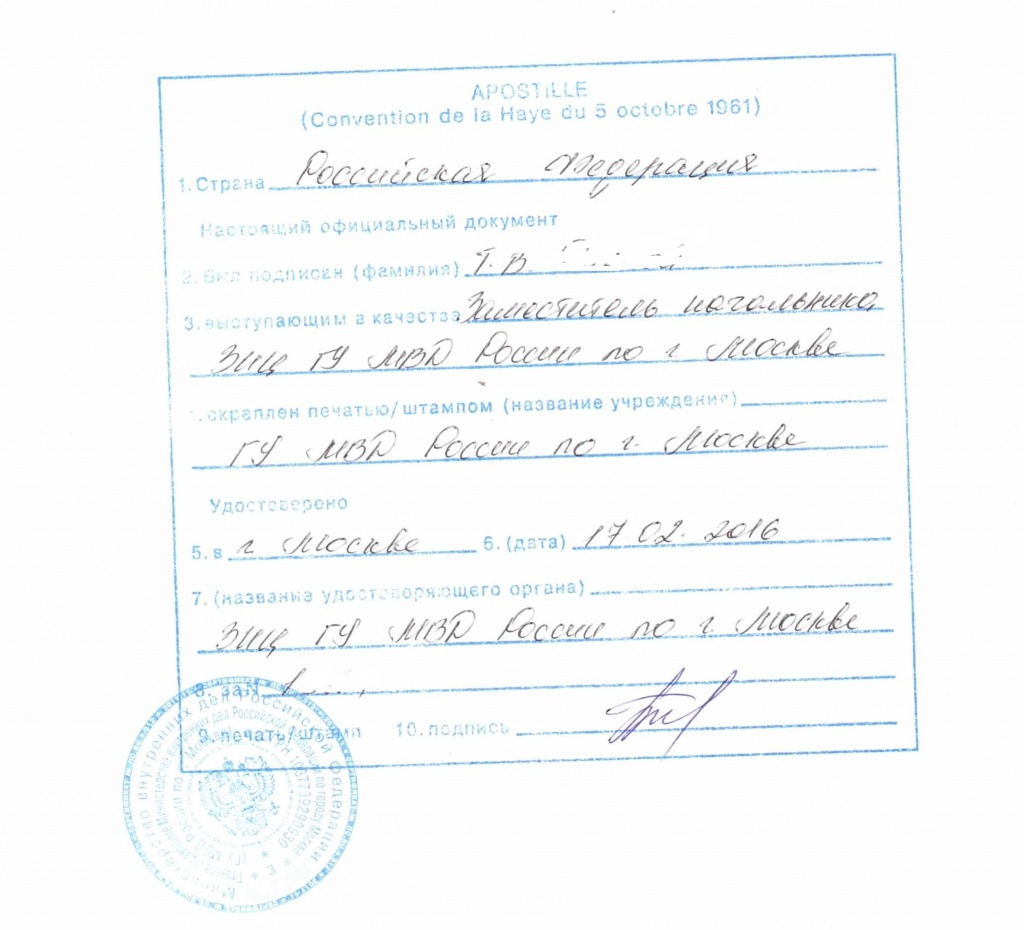 APOSTILLE
(Convention de la Haye du 5 octobre 1961)
1. Страна Российская Федерация
Настоящий официальный документ
2. был подписан (фамилия) Т.В.
3. выступающим в качестве Заместитель начальника
ЗИЦ ГУ МВД России по г. Москве
4. скреплен печатью/штампом (название учреждения)
ГУ МВД России по г. Москве
Удостоверено
5. в г. Москве 6. (дата) 17.02.2016
7. (название удостоверяющего органа)
ЗИЦ ГУ МВД России по г. Москве
8. за N
9. печать/штамп 10. подпись
Министерство внутренних дел Российской Федерации
Главное управление Министерства внутренних дел Российской Федерации по городу Москве
* 3 *